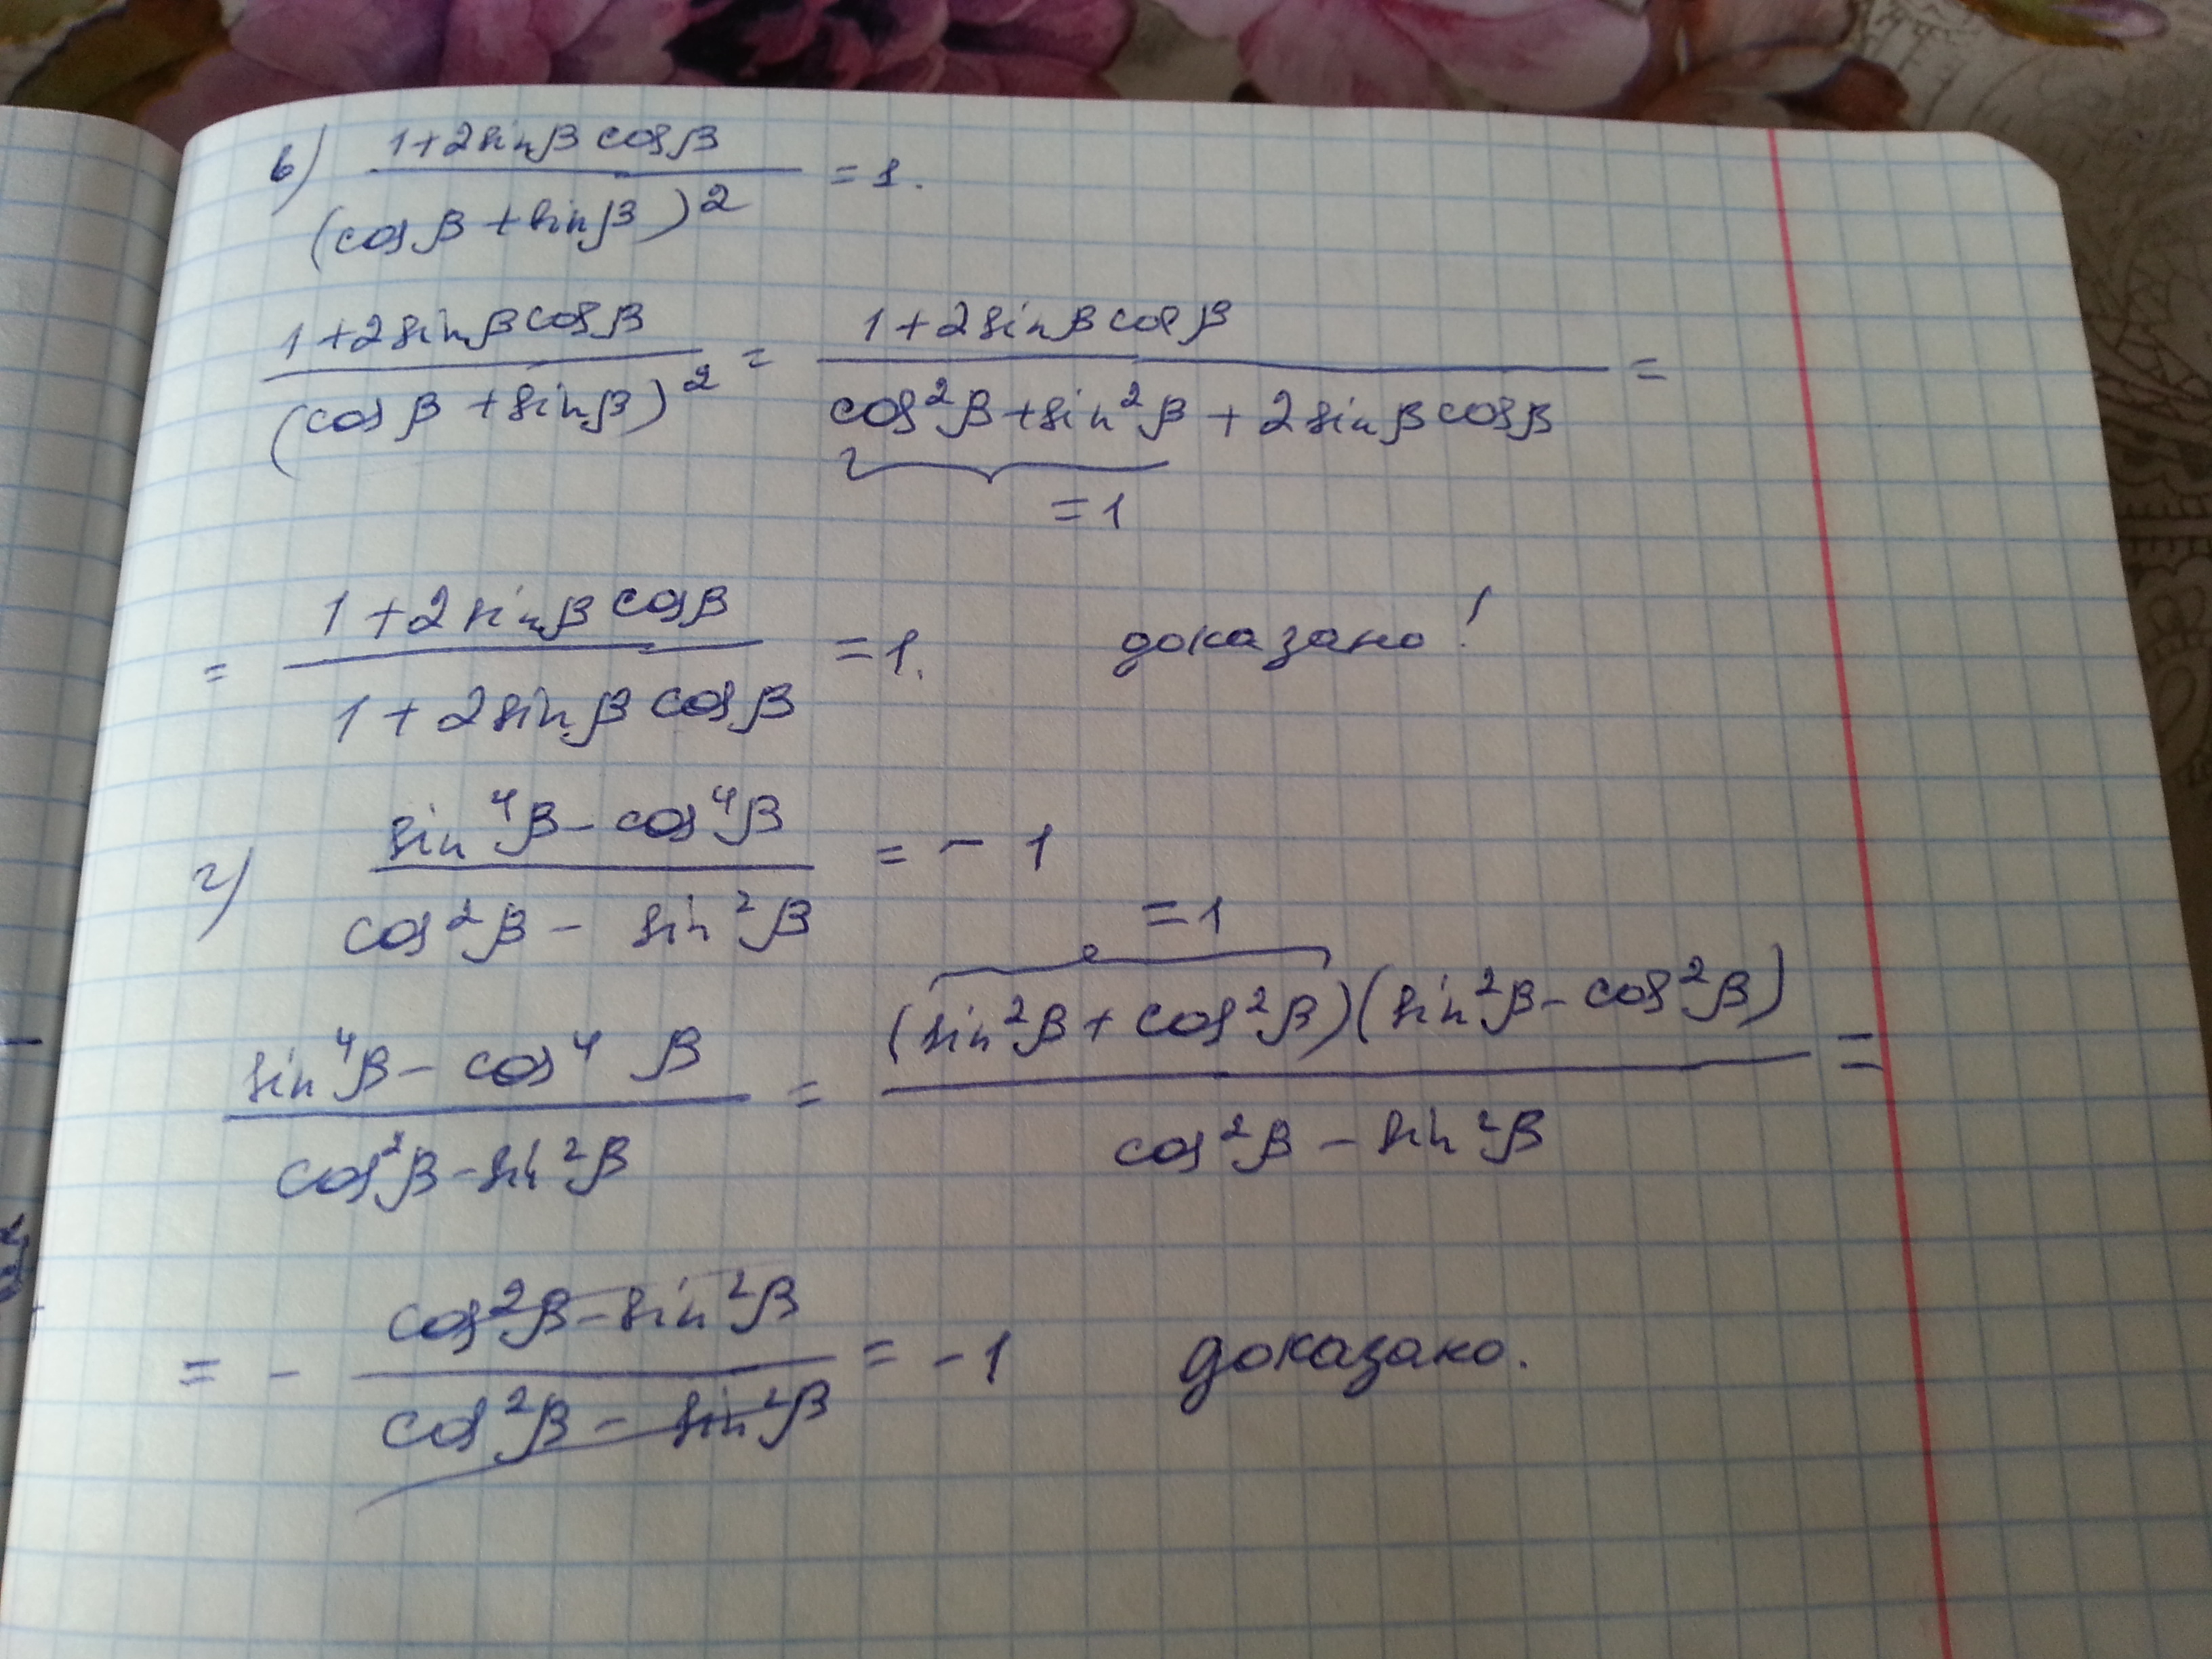 в) (1+2sinβcosβ)/(cosβ+sinβ)² = 1.
(1+2sinβcosβ)/(cosβ+sinβ)² = (1+2sinβcosβ)/(cos²β+sin²β+2sinβcosβ) =
=1
= (1+2sinβcosβ)/(1+2sinβcosβ) = 1. доказано!
г) (sin⁴β-cos⁴β)/(cos²β-sin²β) = -1
=1
(sin⁴β-cos⁴β)/(cos²β-sin²β) = (sin²β+cos²β)(sin²β-cos²β)/(cos²β-sin²β) =
= -(cos²β-sin²β)/(cos²β-sin²β) = -1 доказано.